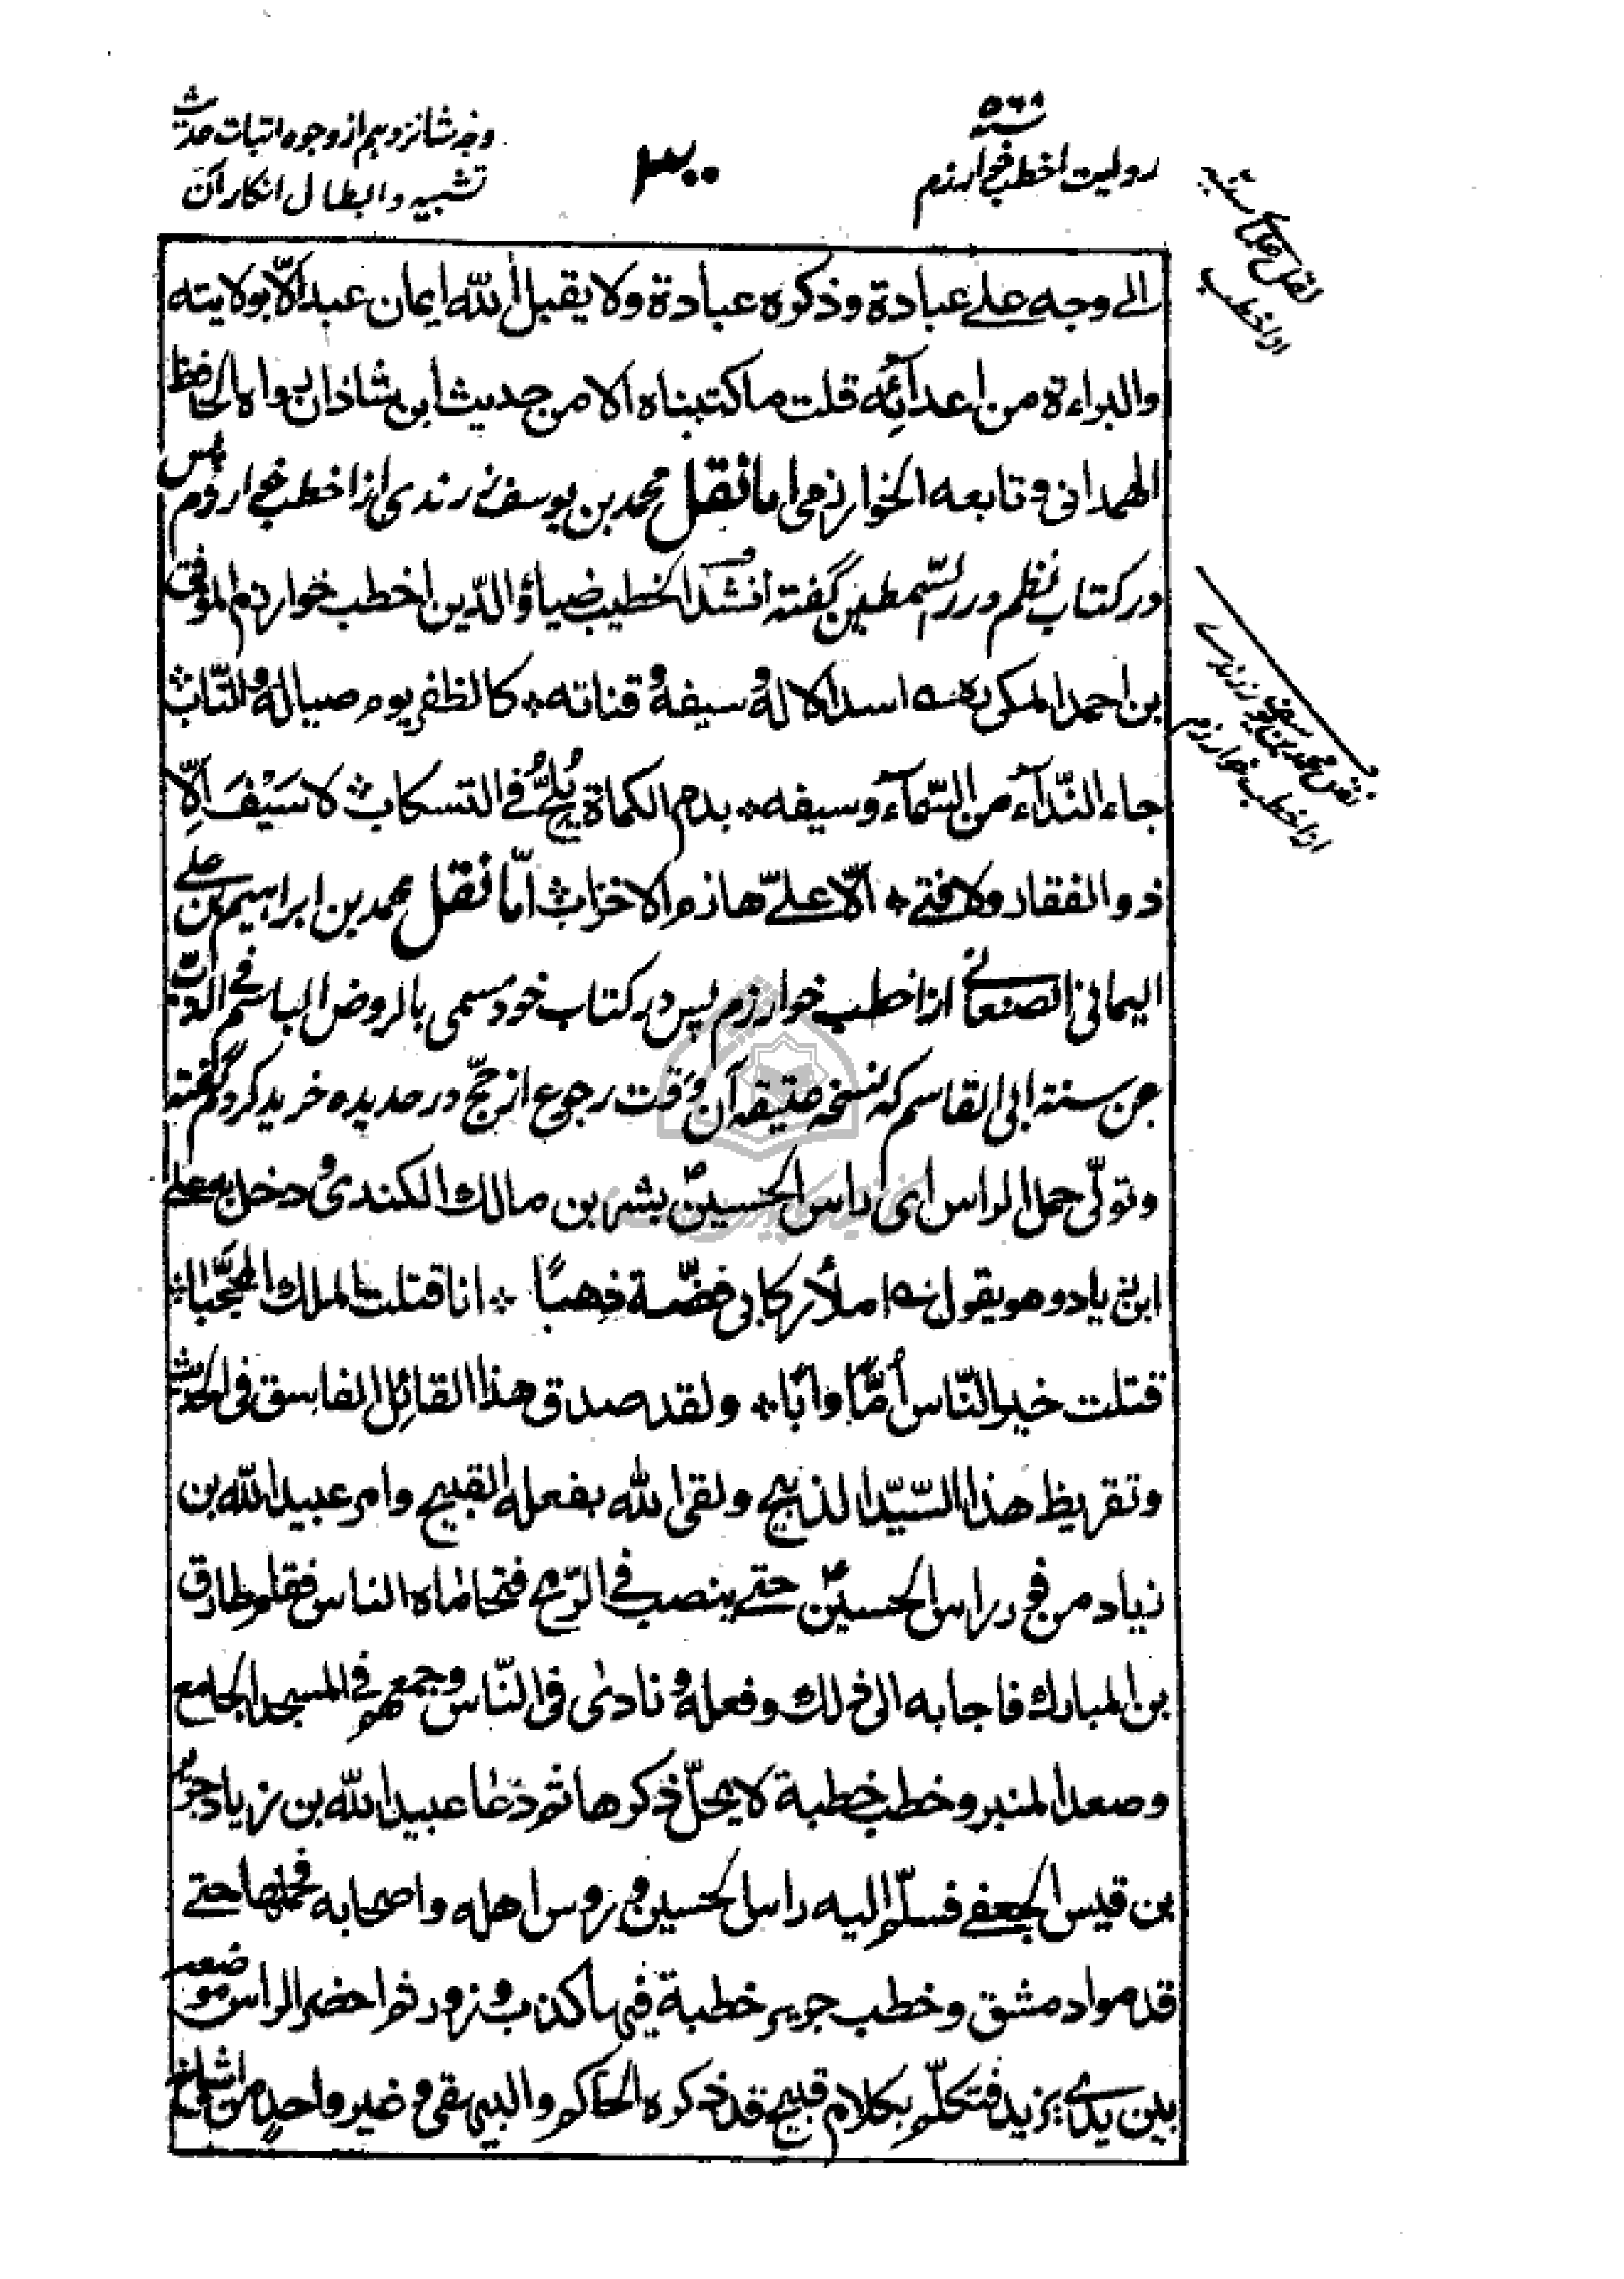 روایت اخطب خوارزم
۳۰۰
وجه شانزدهم از وجوه اثبات حدیث
تشبیه و ابطال انکار آن
الی وجه علی عبادة وذکره عبادة ولا یقبل الله ایمان عبد الّا بولایته
والبراءة من اعدائه قلت ما کتبناه الا من حدیث ابن شاذان رواه الحافظ
الهمدانی و تابعه الخوارزمی اما نقل محمد بن یوسف زرندی از اخطب خوارزم پس
در کتاب نظم درر السّمطین گفته انشد الخطیب ضیاؤ الدّین اخطب خوارزم الموفق
بن احمد المکی ره اسد الاله وسیفهُ وقناته * کالظفر یوم صیالهُ والنّاب *
جاء النّدآء من السّمآء وسیفه * بدم الکماة یُلِحُّ فی التسکاب * لا سَیْفَ الّا
ذو الفقار ولا فتی * الّا علیّ هازم الاحزاب * امّا نقل محمد بن ابراهیم بن علی
الیمانی الصنعانی از اخطب خوارزم پس در کتاب خود مسمی بالروض الباسم فی الذبّ
عن سنة ابی القاسم که نسخه عتیقه آن وقت رجوع از حجّ در حدیده خرید کردم گفته
وتولّی حمل الراس ای راس الحسینؑ بشر بن مالک الکندی و دخل به علی
ابن زیاد وهو یقول املأ رکابی فضّة وذهبًا * انا قتلت الملک المحجّبا *
قتلت خیر النّاس أمًّا وابًا * ولقد صدق هذا القائل الفاسق فی الحدیث
وتقریظ هذا السّیّد الذبیح ولقی الله بفعله القبیح وامر عبید الله بن
زیاد من قور راس الحسینؑ حتی ینصب فی الرّمح فتحاماه الناس فقام طارق
بن المبارک فاجابه الی ذلک وفعله ونادی فی النّاس وجمعهم فی المسجد الجامع
وصعد المنبر وخطب خطبة لا یحلّ ذکرها ثم دعا عبید الله بن زیاد جریر
بن قیس الجعفی فسلّم الیه راس الحسین ورؤس اهله واصحابه فحملها حتی
قدموا دمشق وخطب جریر خطبة فیها کذب وزور ثم احضر الراس فوضعه
بین یدی یزید فتکلّم بکلام قبیح قد ذکره الحاکم والبیهقی وغیر واحد من اشیاخ
نقل محمد بن یوسف زرندی
از اخطب خوارزم